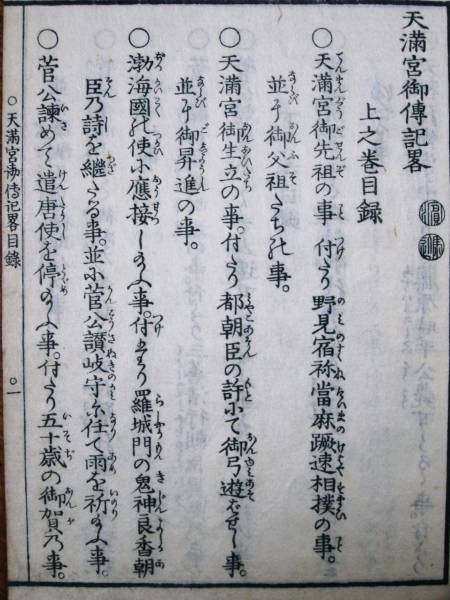 天滿宮御傳記畧
上之巻目録
○天滿宮御先祖の事 付たり野見宿祢當麻蹶速相撲の事。
並に御父祖たちの事。
○天滿宮御生立の事。付たり都朝臣の許にて御弓遊ばせし事。
並に御昇進の事。
○渤海國の使に應接し玉ふ事。付たり羅城門の鬼神良香朝
臣乃詩を継たる事。並に菅公讃岐守に任て雨を祈玉ふ事。
○菅公諫めて遣唐使を停玉ふ事。付たり五十歳の御賀乃事。
○天滿宮御傳記畧目録
○一